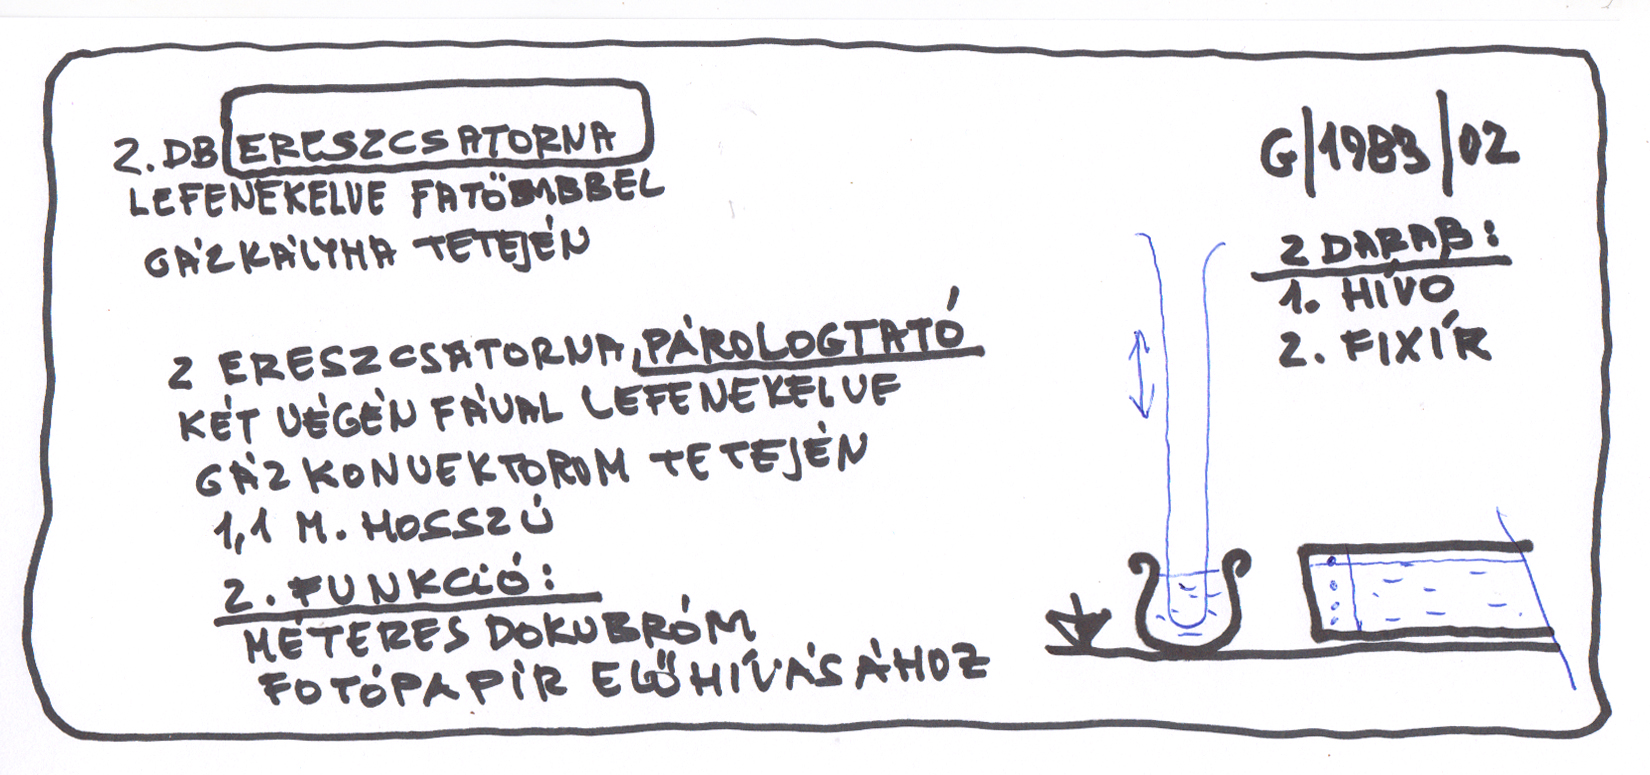 2.DB ERESZCSATORNA
LEFENEKELVE FATÖMBBEL
GÁZKÁLYHA TETEJÉN
2 ERESZCSATORNA, PÁROLOGTATÓ
KÉT VÉGÉN FÁVAL LEFENEKELVE
GÁZKONVEKTOROM TETEJÉN
1,1 M. HOSSZÚ
2. FUNKCIÓ:
MÉTERES DOKUBRÓM
FOTÓPAPÍR ELŐHÍVÁSÁHOZ
G/1983/02
2 DARAB:
1. HÍVO
2. FIXÍR